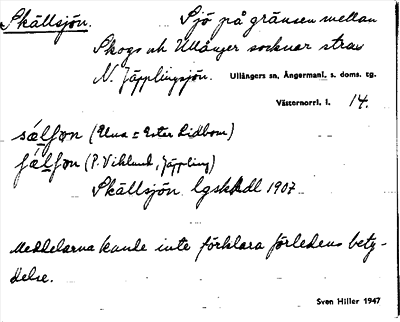 Skällsjön.
Sjö på gränsen mellan
Skogs och Ullånger socknar strax
N. Jäpplingsjön.
Ullångers sn, Ångermanl. s. doms. tg.
Västernorrl. l. 14.
(Una = Ester Lidbom)
(P. Viklund, Jäppling)
Skällsjön lgsk. 1907
Meddelarna kunde inte förklara förledens bety-
delse.
Sven Hiller 1947